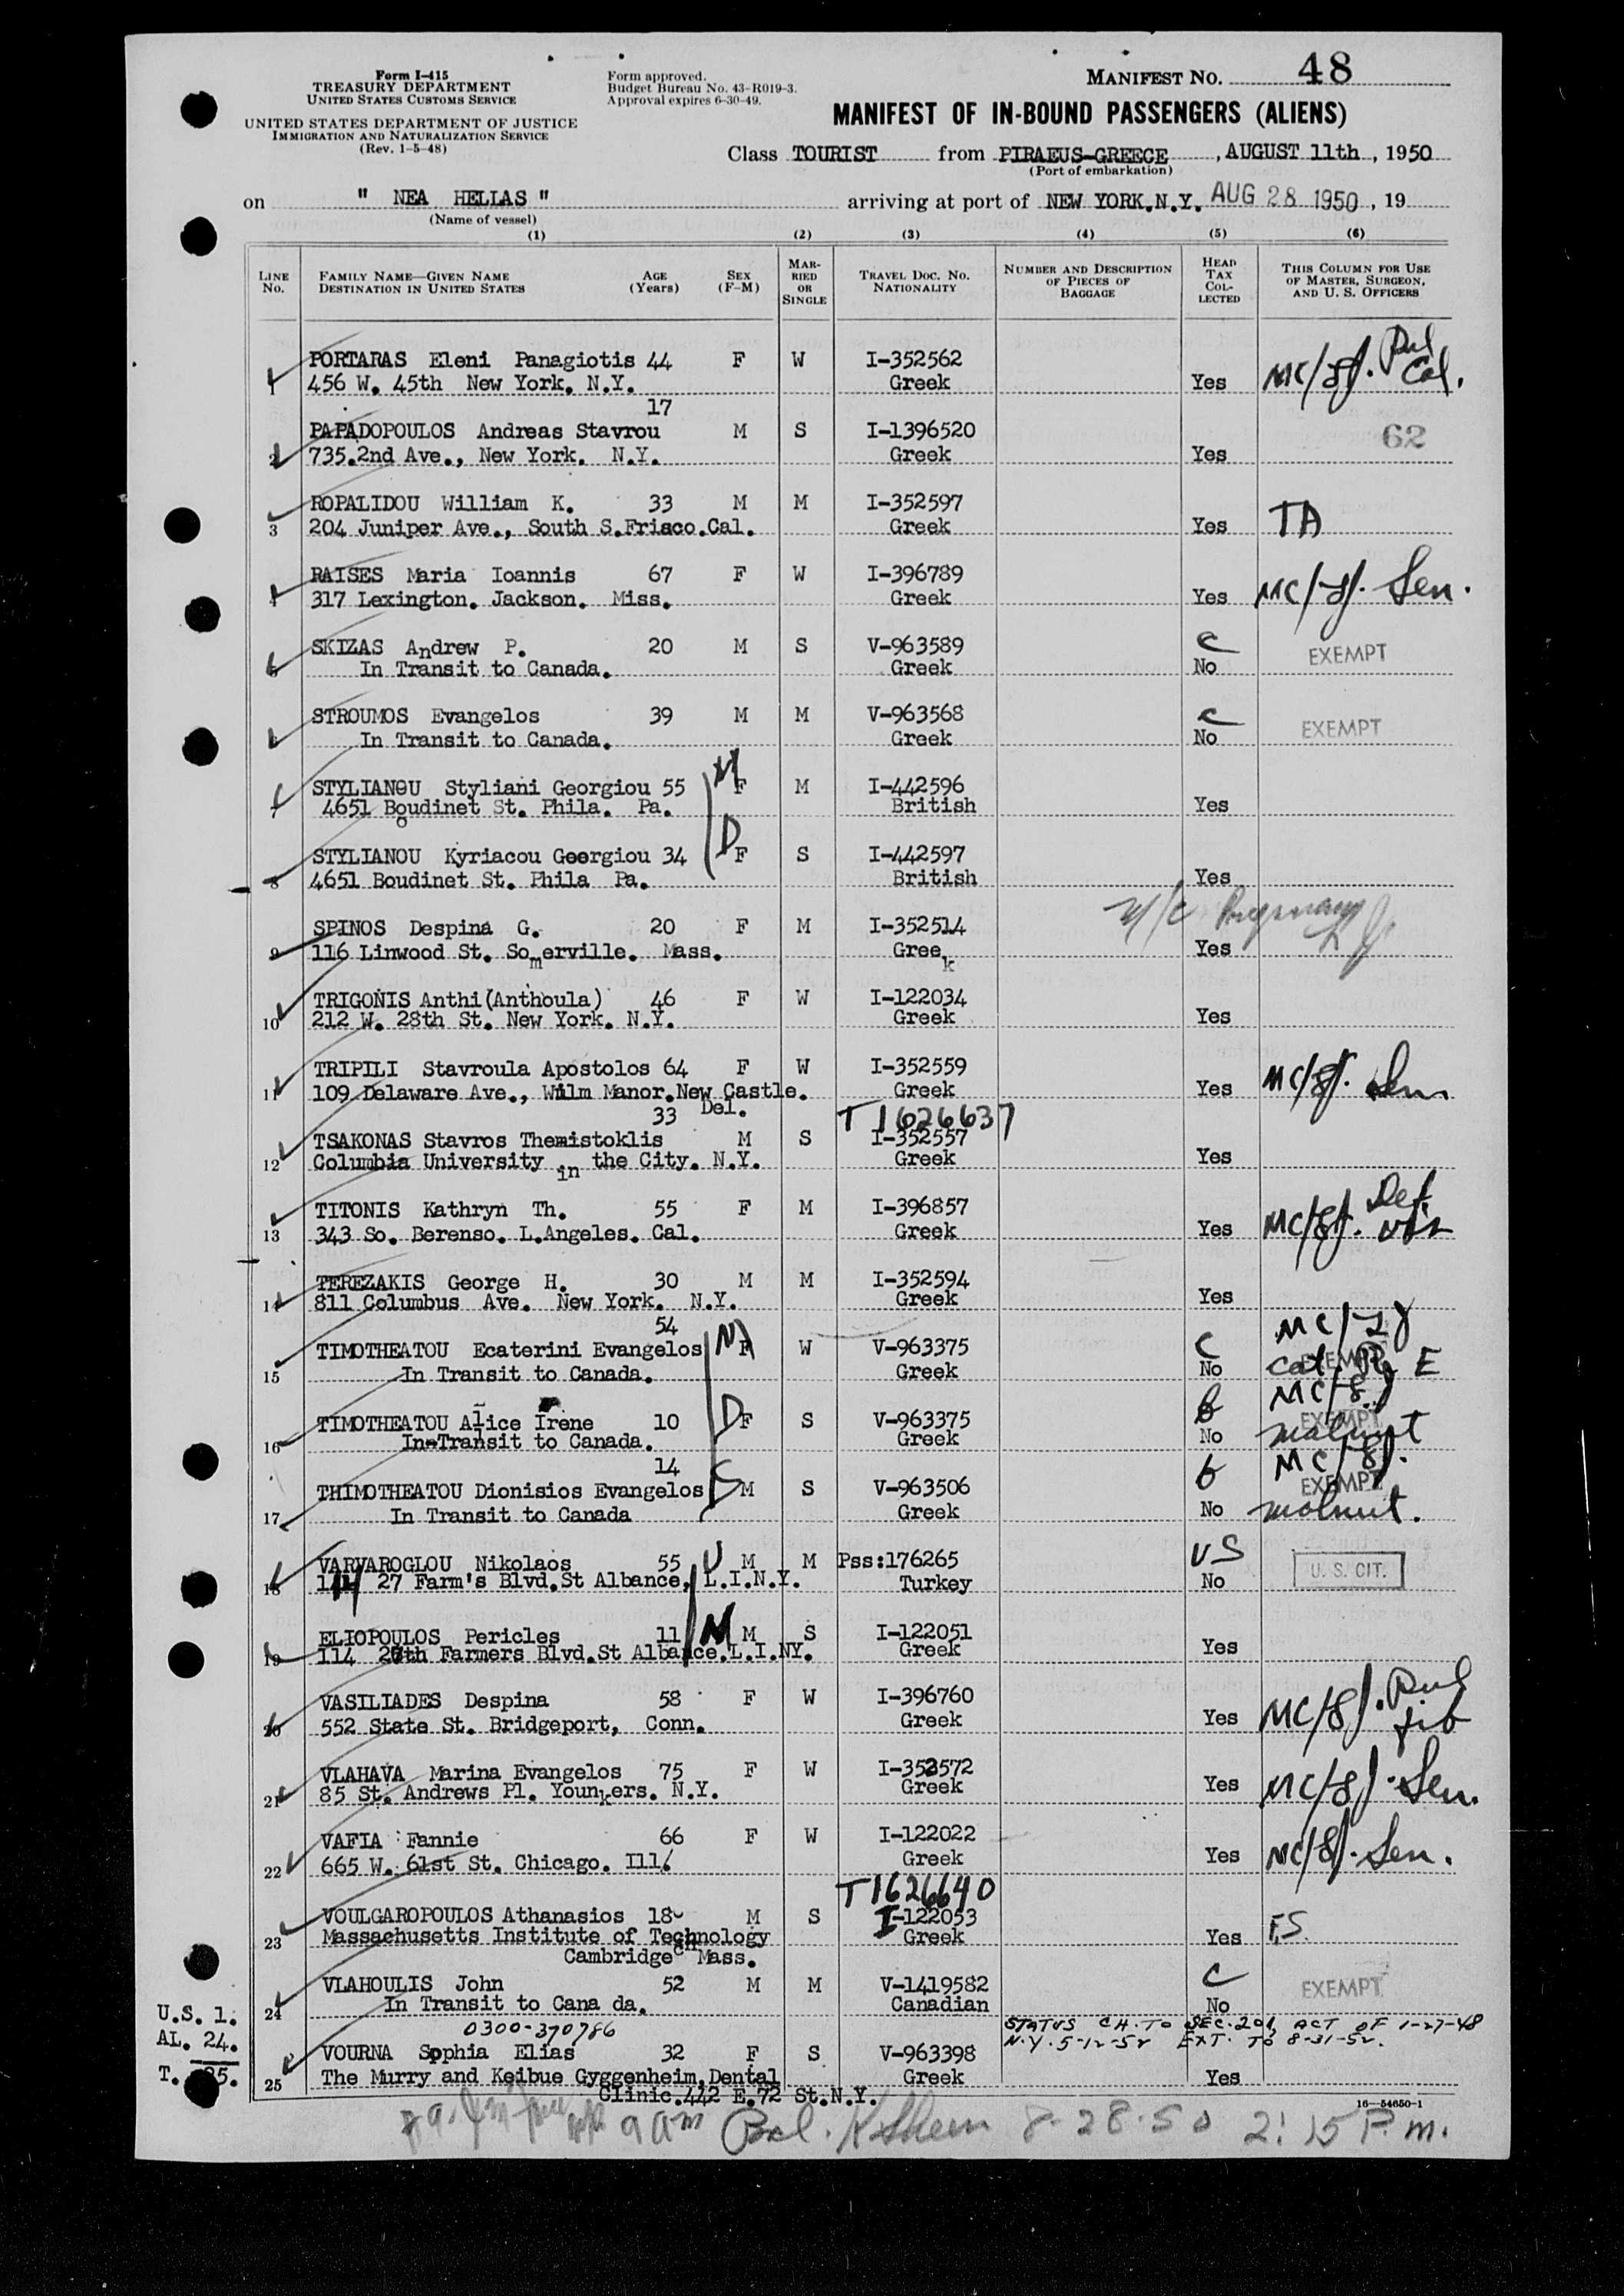 Form I-415
TREASURY DEPARTMENT
UNITED STATES CUSTOMS SERVICE
UNITED STATES DEPARTMENT OF JUSTICE
IMMIGRATION AND NATURALIZATION SERVICE
(Rev. 1-5-48)
Form approved.
Budget Bureau No. 43-R019-3.
Approval expires 6-30-49.
MANIFEST NO. 48
MANIFEST OF IN-BOUND PASSENGERS (ALIENS)
Class TOURIST from PIRAEUS-GREECE, AUGUST 11th, 1950
(Port of embarkation)
on " NEA HELLAS " arriving at port of NEW YORK.N.Y. AUG 28 1950, 19
(Name of vessel)
(1) (2) (3) (4) (5) (6)
LINE No.
FAMILY NAME—GIVEN NAME
DESTINATION IN UNITED STATES
AGE (Years)
SEX (F-M)
MARRIED OR SINGLE
TRAVEL DOC. NO. NATIONALITY
NUMBER AND DESCRIPTION OF PIECES OF BAGGAGE
HEAD TAX COLLECTED
THIS COLUMN FOR USE OF MASTER, SURGEON, AND U. S. OFFICERS
PORTARAS Eleni Panagiotis 44 F W I-352562
1 456 W. 45th New York. N.Y. Greek Yes
17
PAPADOPOULOS Andreas Stavrou M S I-1396520 62
2 735.2nd Ave., New York. N.Y. Greek Yes
ROPALIDOU William K. 33 M M I-352597
3 204 Juniper Ave., South S.Frisco.Cal. Greek Yes TA
RAISES Maria Ioannis 67 F W I-396789
4 317 Lexington. Jackson. Miss. Greek Yes Sen.
SKIZAS Andrew P. 20 M S V-963589 C EXEMPT
5 In Transit to Canada. Greek No
STROUMOS Evangelos 39 M M V-963568 C EXEMPT
6 In Transit to Canada. Greek No
STYLIANOU Styliani Georgiou 55 M F M I-442596
7 4651 Boudinot St. Phila. Pa. British Yes
STYLIANOU Kyriacou Georgiou 34 D F S I-442597
8 4651 Boudinet St. Phila Pa. British Yes
SPINOS Despina G. 20 F M I-352514 Pregnancy
9 116 Linwood St. Somerville. Mass. Greek Yes
TRIGONIS Anthi(Anthoula) 46 F W I-122034
10 212 W. 28th St. New York. N.Y. Greek Yes
TRIPILI Stavroula Apostolos 64 F W I-352559
11 109 Delaware Ave., Wilm Manor.New Castle. Greek Yes Sen
33 Del. T 1626637
TSAKONAS Stavros Themistoklis M S I-352557
12 Columbia University in the City. N.Y. Greek Yes
TITONIS Kathryn Th. 55 F M I-396857
13 343 So. Berenso. L.Angeles. Cal. Greek Yes Def.
TEREZAKIS George H. 30 M M I-352594
14 811 Columbus Ave. New York. N.Y. Greek Yes
54
TIMOTHEATOU Ecaterini Evangelos M F W V-963375 C
15 In Transit to Canada. Greek No EXEMPT
TIMOTHEATOU Alice Irene 10 D F S V-963375
16 In-Transit to Canada. Greek No EXEMPT malnut
14
THIMOTHEATOU Dionisios Evangelos M S V-963506 EXEMPT
17 In Transit to Canada Greek No malnut.
VARVAROGLOU Nikolaos 55 U M M Pss:176265 US U. S. CIT.
18 114 27 Farm's Blvd.St Albance, L.I.N.Y. Turkey No
ELIOPOULOS Pericles 11 N M S I-122051
19 114 27th Farmers Blvd.St Albance.L.I.NY. Greek Yes
VASILIADES Despina 58 F W I-396760
20 552 State St. Bridgeport, Conn. Greek Yes
VLAHAVA Marina Evangelos 75 F W I-352572
21 85 St. Andrews Pl. Younkers. N.Y. Greek Yes Sen.
VAFIA Fannie 66 F W I-122022
22 665 W. 61st St. Chicago. Ill. Greek Yes Sen.
T1626640
VOULGAROPOULOS Athanasios 18 M S I-122053
23 Massachusetts Institute of Technology Greek Yes F.S.
Cambridge Mass.
VLAHOULIS John 52 M M V-1419582 C EXEMPT
24 In Transit to Cana da. Canadian No
U.S. 1.
AL. 24.
T. 25.
0300-370786 STATUS CH. TO SEC. 201, ACT OF 1-27-48
N.Y. 5-12-52 EXT. TO 8-31-52.
VOURNA Sophia Elias 32 F S V-963398
25 The Murry and Keibue Gyggenheim,Dental Greek Yes
Clinic.442 E.72 St.N.Y.
16—54650-1
9 am 8-28-50 2:15 P.m.